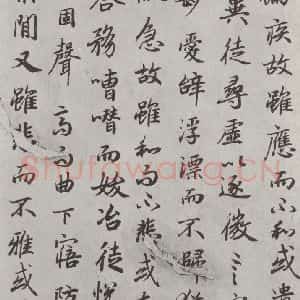 偏疾故雖應而不和或遺
異徒尋虛以逐微言
愛辭浮漂而不歸猶
急故雖和而不悲或
務嘈囋而妖冶徒悅
固聲高而曲下寤防
間又雖悲而不雅或
Shufawang.CN